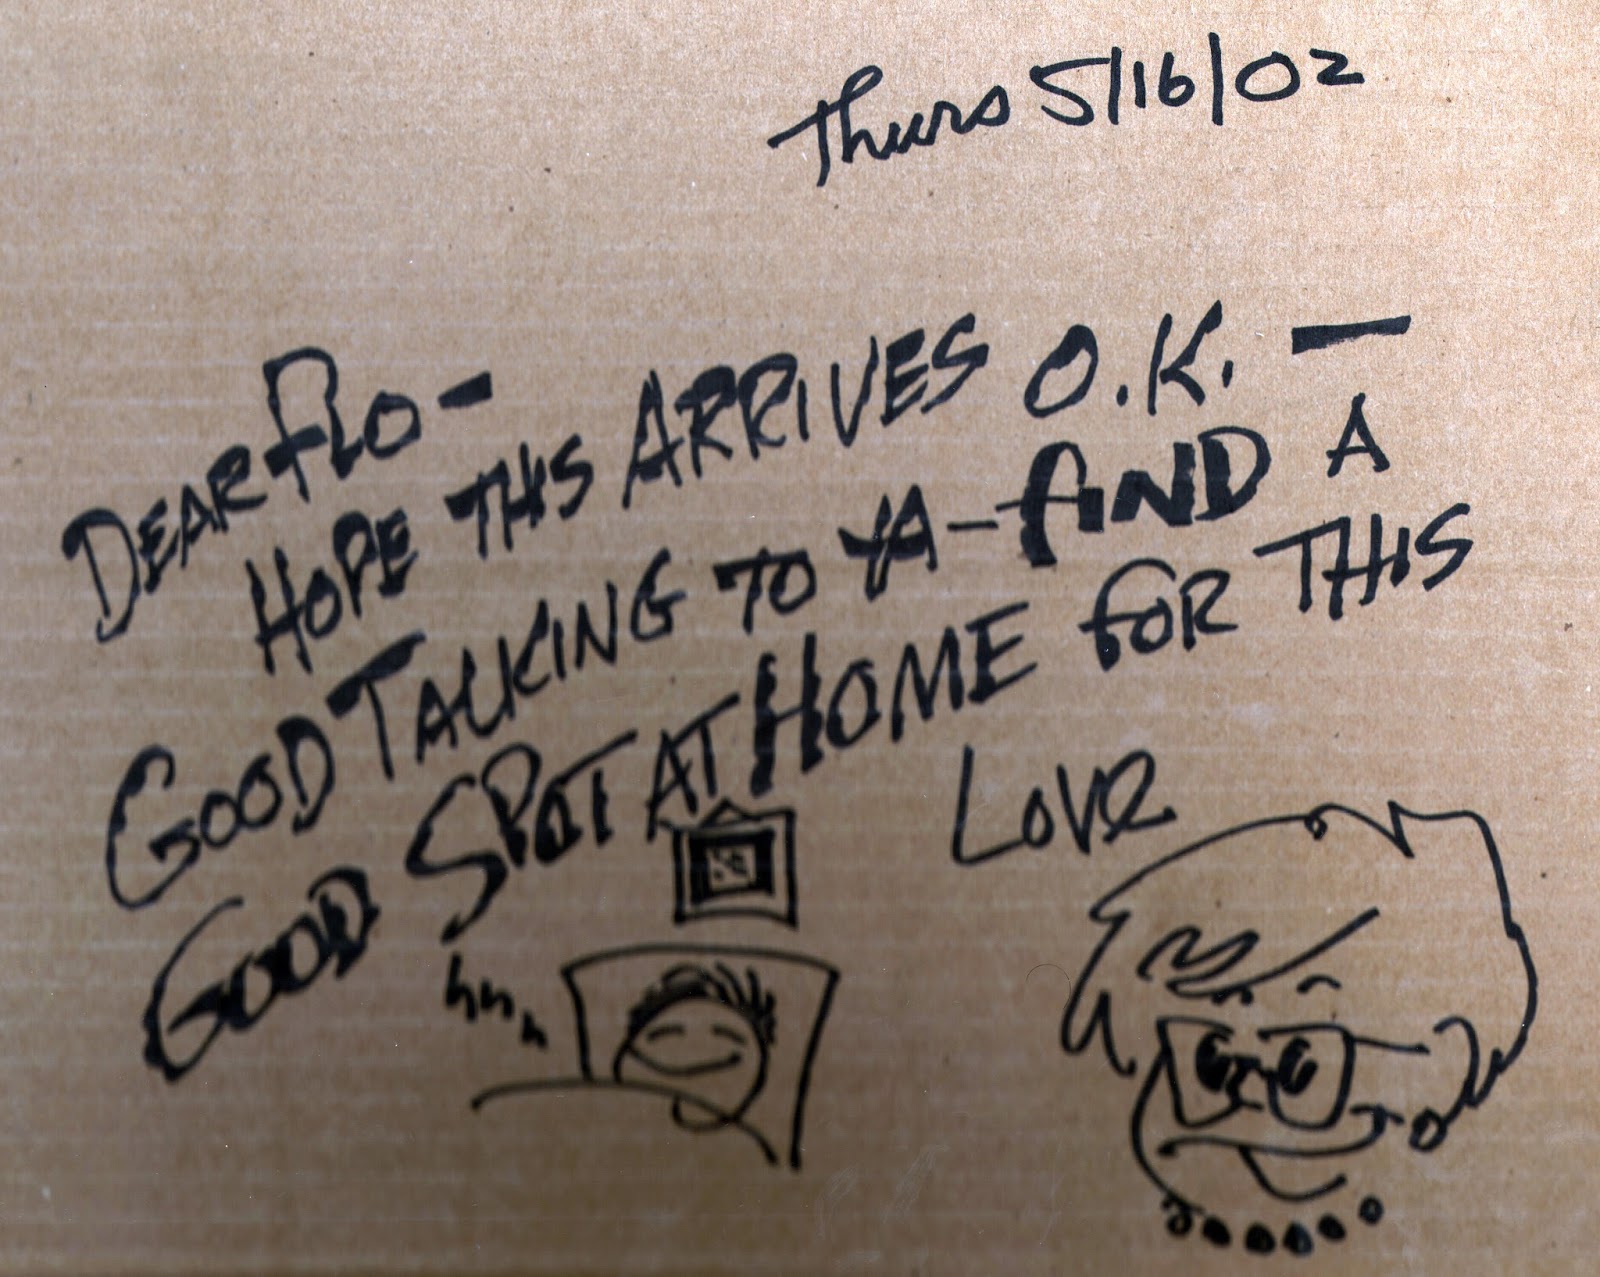 Thurs 5/16/02
DEAR FLO -
HOPE THIS ARRIVES O.K. —
GOOD TALKING TO YA - FIND A
GOOD SPOT AT HOME FOR THIS
LOVE